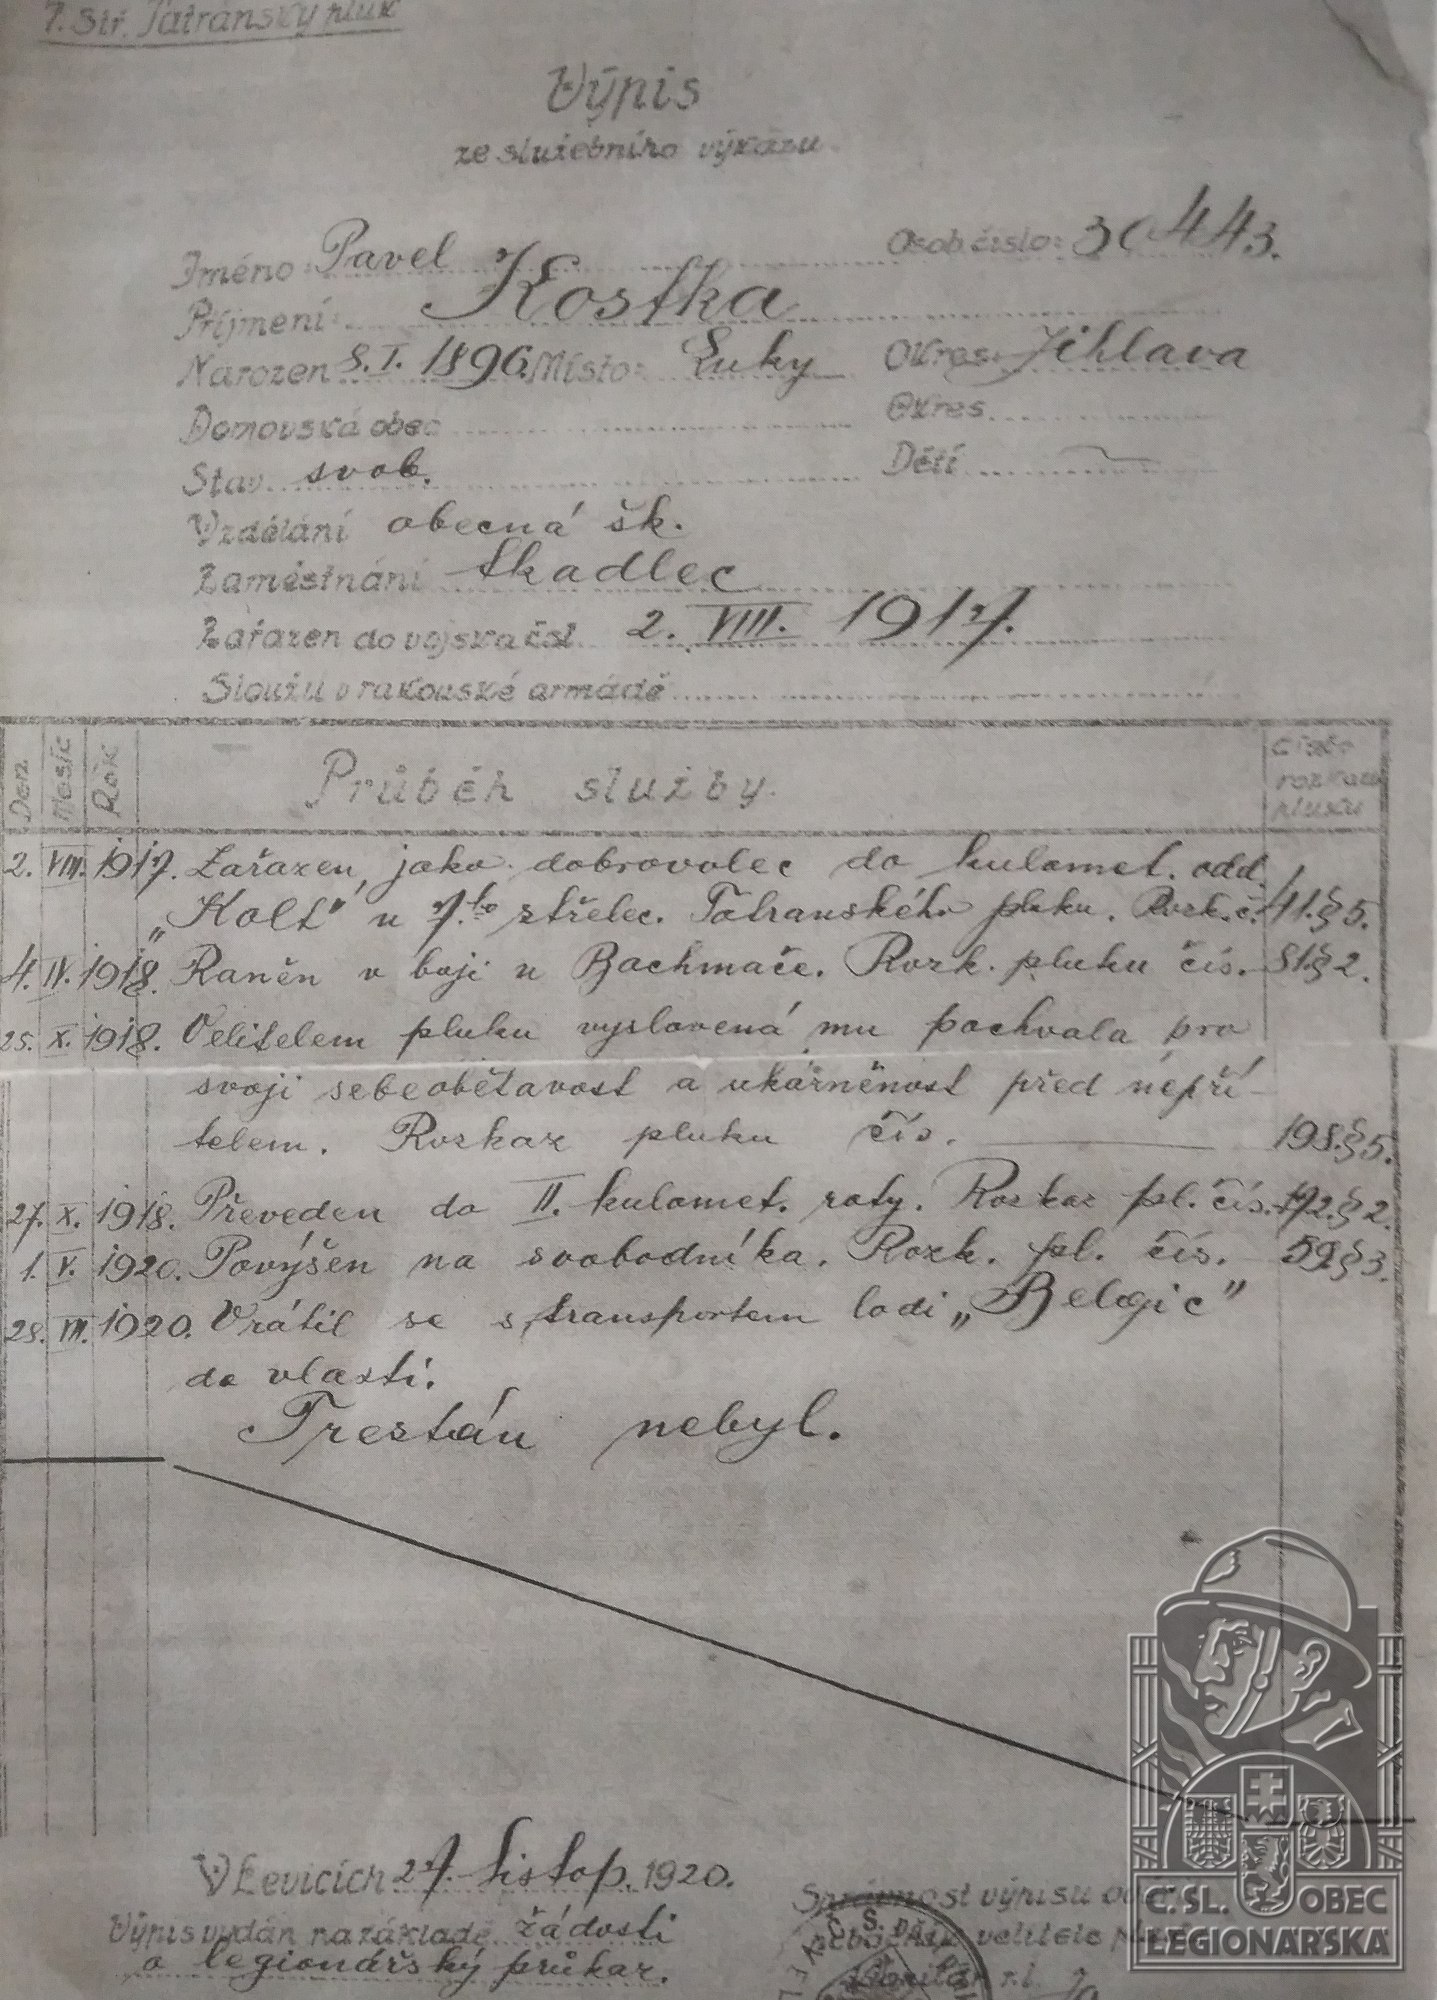 7. Stř. Tatranský pluk
Výpis
ze služebního výkazu.
Jméno: Pavel Osob. číslo: 30443.
Příjmení: Kostka
Narozen 8. I. 1896. Místo: Luky Okres: Jihlava
Domovská obec Okres
Stav svob. Děti
Vzdělání obecná šk.
Zaměstnání tkadlec
Zařazen do vojska čsl. 2. VIII. 1917.
Sloužil v rakouské armádě
Den Měsíc Rok Průběh služby. Číslo rozkazu pluku
2. VIII. 1917. Zařazen, jako dobrovolec do kulomet. odd.
„Kolt" u 7.ho střelec. Tatranského pluku. Rozk. č. 41. § 5.
4. IV. 1918. Raněn v boji u Bachmače. Rozk. pluku čís. 81. § 2.
25. X. 1918. Velitelem pluku vyslovená mu pochvala pro
svoji sebeobětavost a ukázněnost před nepří-
telem. Rozkaz pluku čís. 198. § 5.
27. X. 1918. Převeden do II. kulomet. roty. Rozkaz pl. čís. § 2.
1. V. 1920. Povýšen na svobodníka. Rozk. pl. čís. 59 § 3.
28. VII. 1920. Vrátil se s transportem lodi „Belgic"
do vlasti.
Trestán nebyl.
V Levicích 27. listop. 1920.
Výpis vydán na základě žádosti
o legionářský průkaz.
Správnost výpisu
velitele
r. l.
Č. SL. OBEC
LEGIONÁŘSKÁ